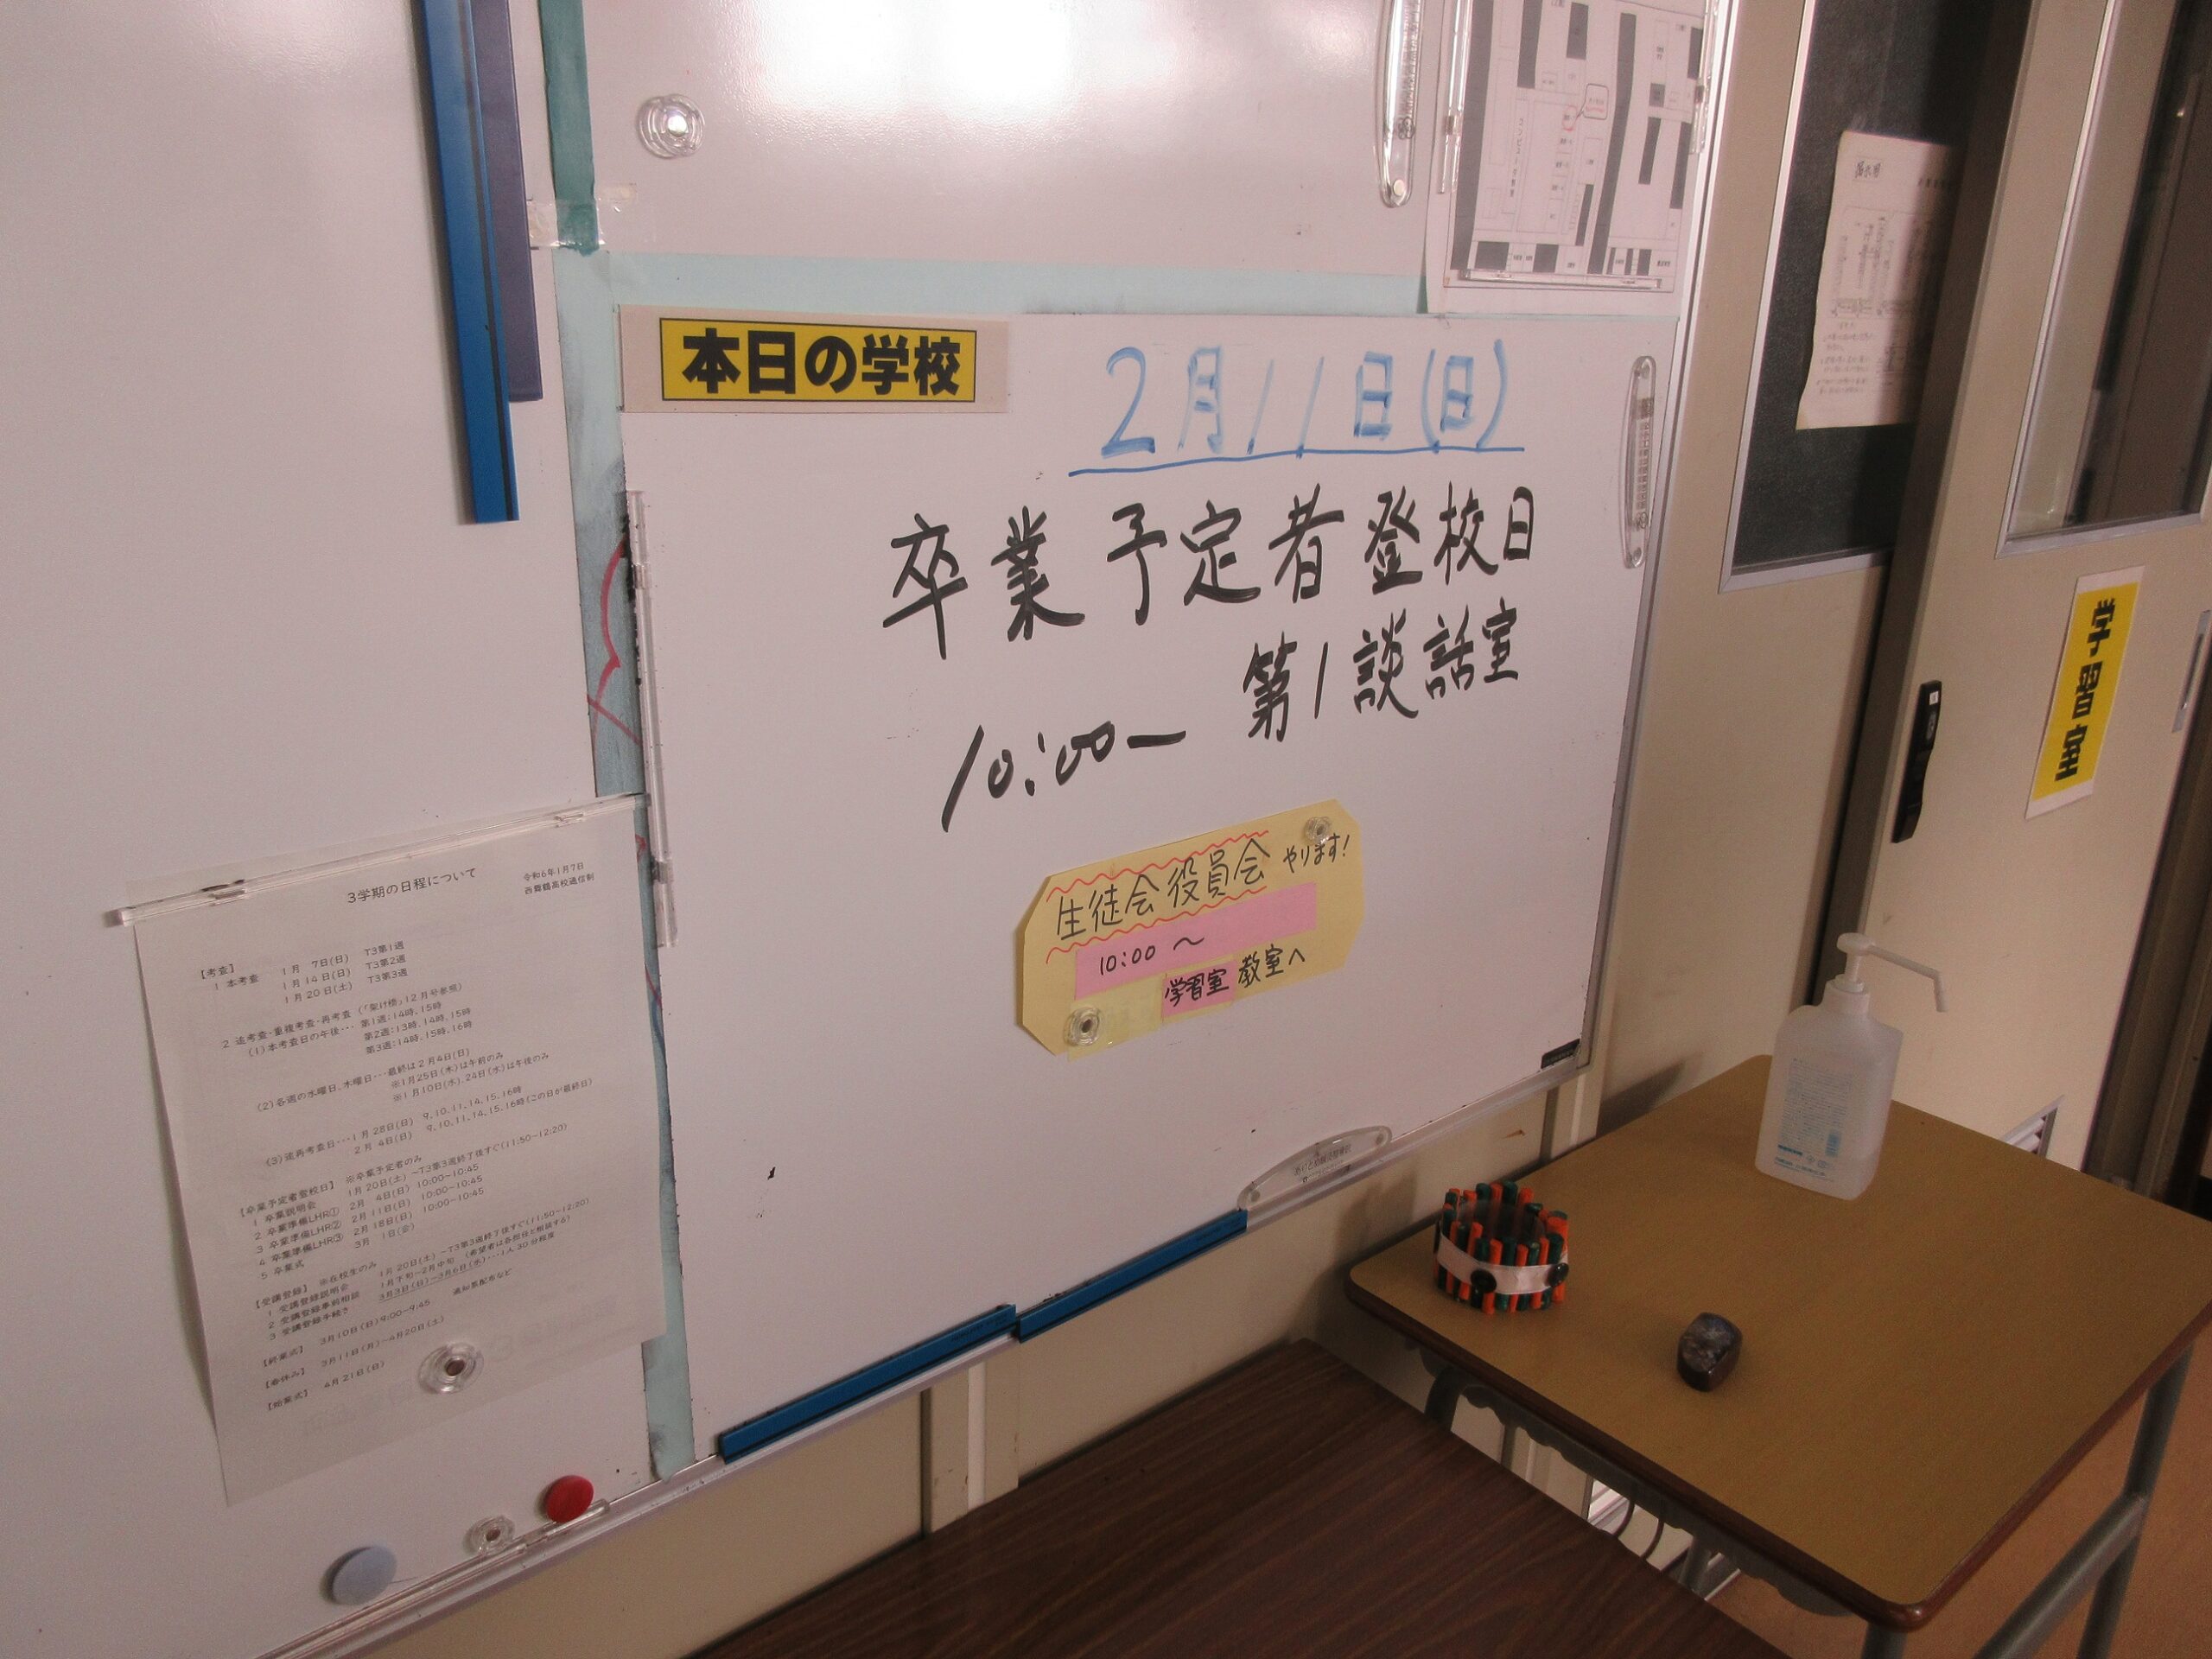 本日の学校
2月11日(日)
卒業予定者登校日
第1談話室
10:00ー
生徒会役員会 やります!
10:00 ~
学習室 教室へ
学習室
3学期の日程について
令和6年1月7日
西舞鶴高校通信制
【考査】
1 本考査 1月 7日(日) T3第1週
1月14日(日) T3第2週
1月20日(土) T3第3週
2 追考査・重複考査・再考査 (「架け橋」12月号参照)
(1)本考査日の午後・・・ 第1週:14時、15時
第2週:13時、14時、15時
第3週:14時、15時、16時
(2)各週の水曜日、木曜日・・・最終は2月4日(日)
※1月25日(木)は午前のみ
※1月10日(水)、24日(水)は午後のみ
(3)追再考査日・・・1月28日(日) 9、10、11、14、15、16時
2月 4日(日) 9、10、11、14、15、16時(この日が最終日)
【卒業予定者登校日】 ※卒業予定者のみ
1 卒業説明会 1月20日(土) ~T3第3週終了後すぐ(11:50~12:20)
2 卒業準備LHR① 2月 4日(日) 10:00~10:45
3 卒業準備LHR② 2月11日(日) 10:00~10:45
4 卒業準備LHR③ 2月18日(日) 10:00~10:45
5 卒業式 3月 1日(金)
【受講登録】 ※在校生のみ
1 受講登録説明会 1月20日(土) ~T3第3週終了後すぐ(11:50~12:20)
2 受講登録事前相談 1月下旬~2月中旬 (希望者は各担任と相談する)
3 受講登録手続き 3月3日(日)~3月6日(水)・・・1人30分程度
【終業式】 3月10日(日)9:00~9:45 通知票配布など
【春休み】 3月11日(月)~4月20日(土)
【始業式】 4月21日(日)